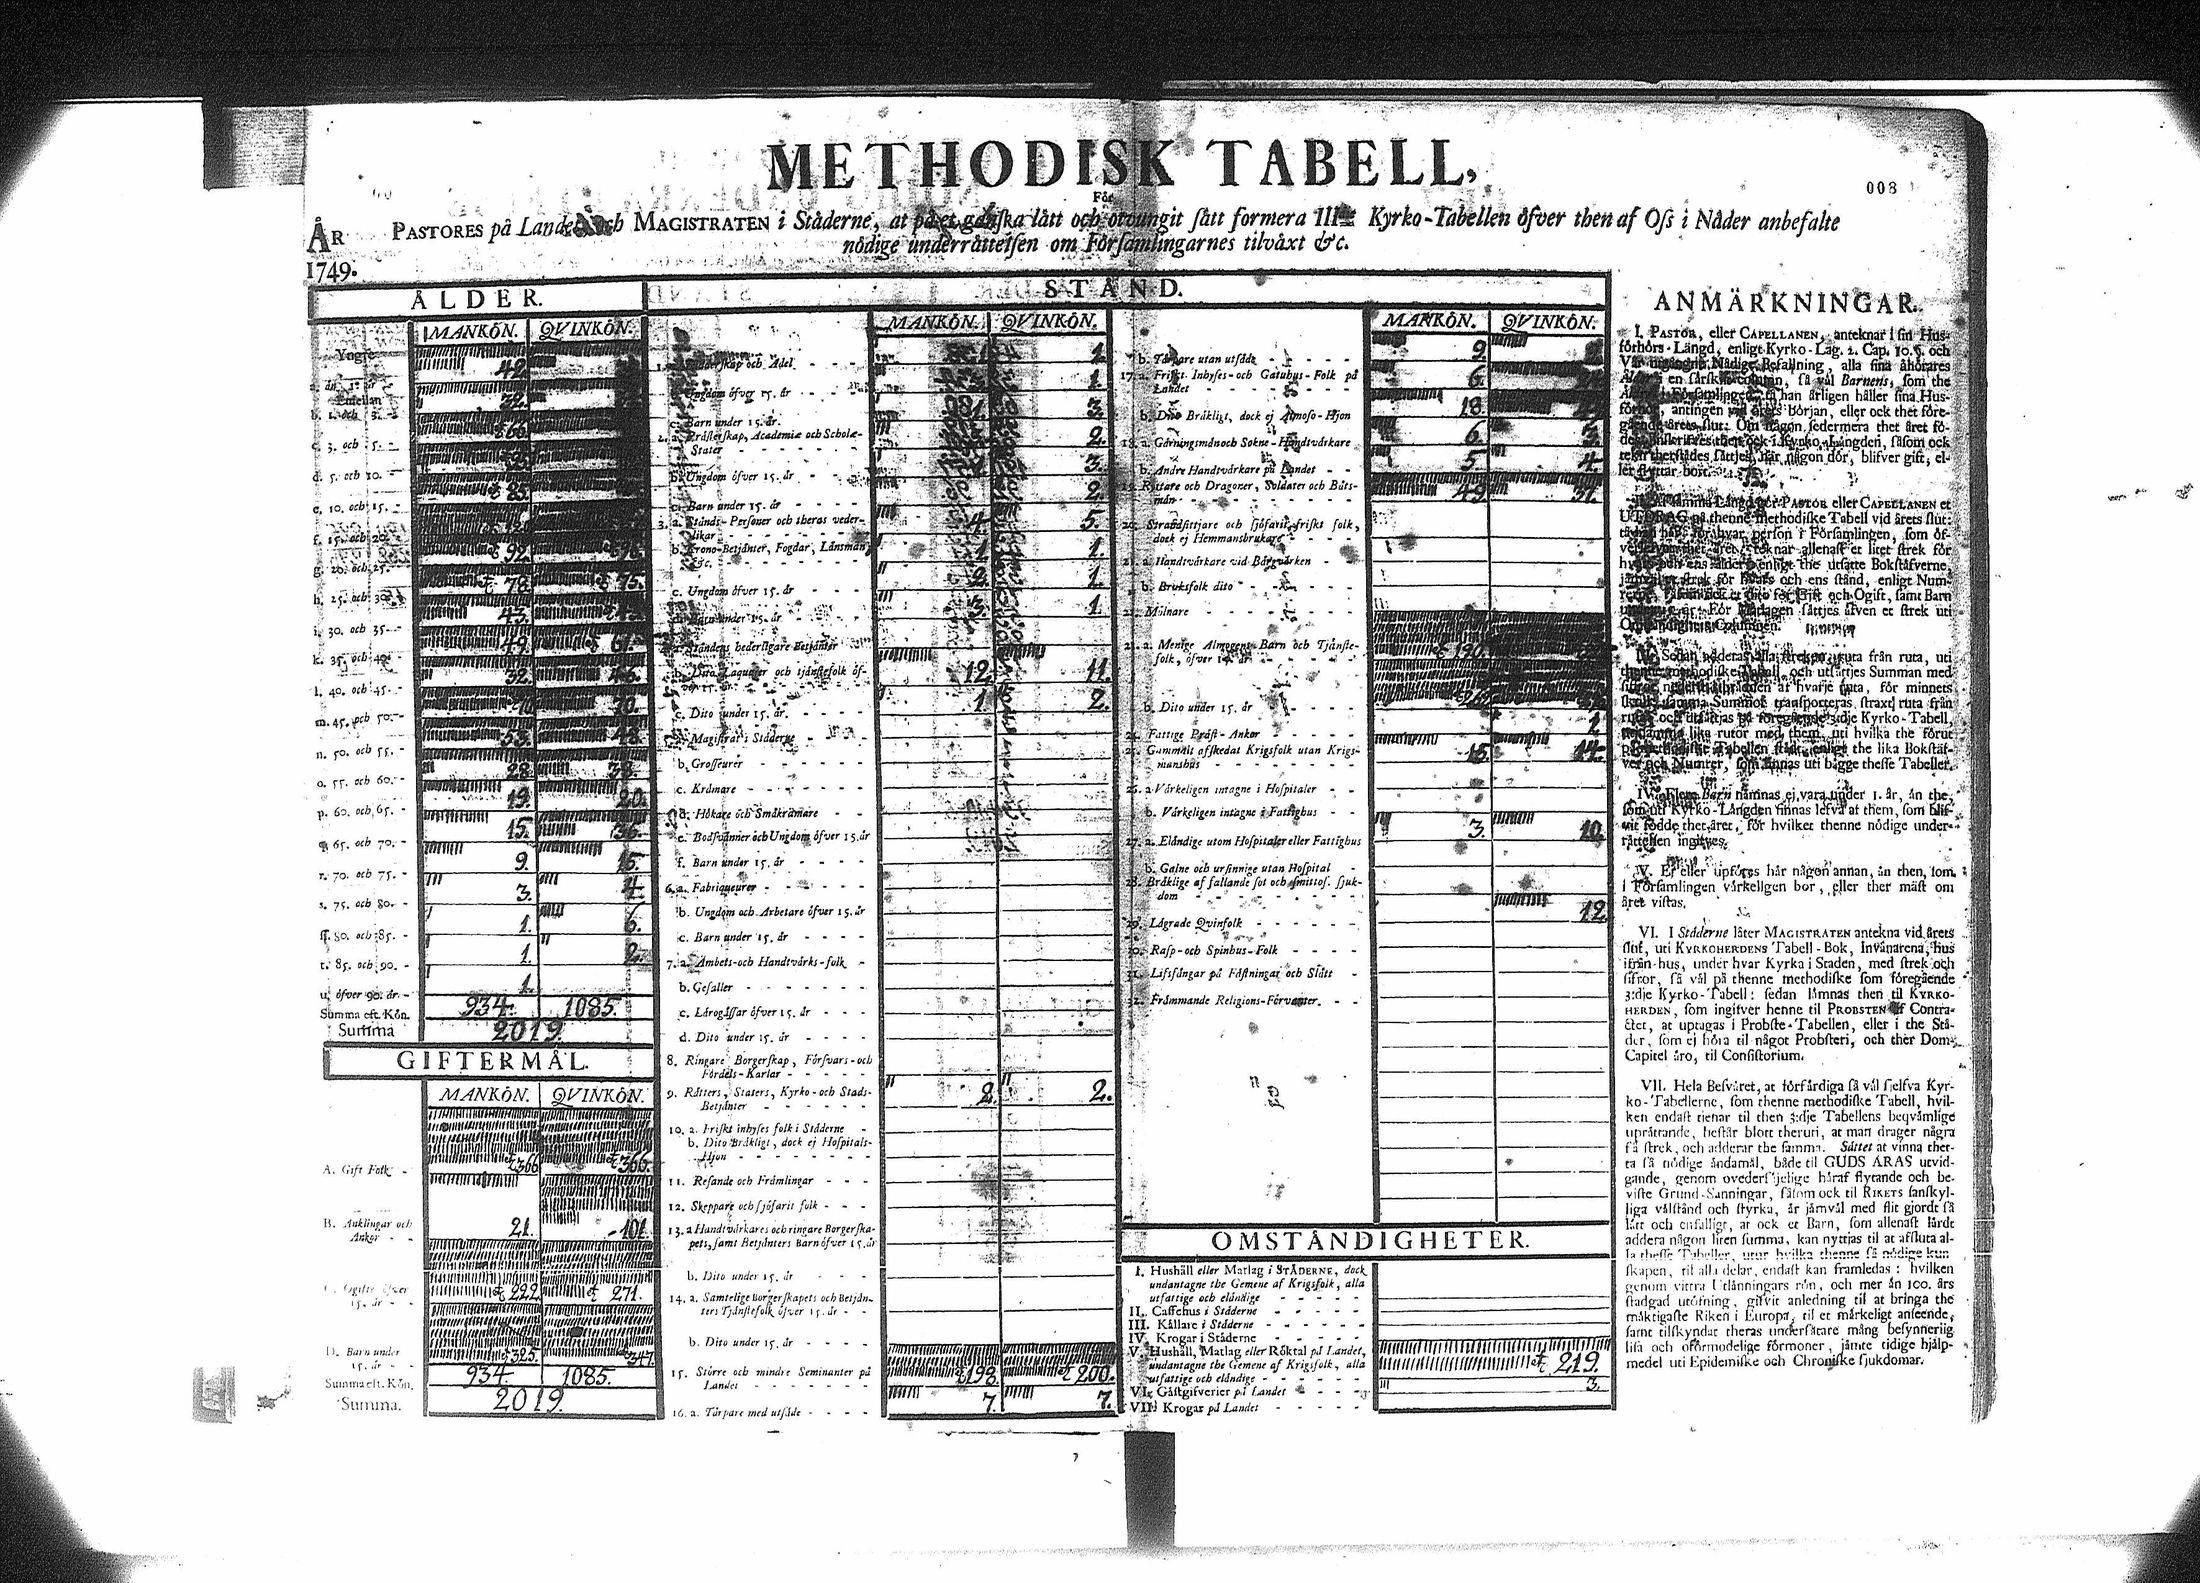 METHODISK TABELL,
För
ÅR
1749.
PASTORES på Landet och MAGISTRATEN i Städerne, at på et ganska lätt och otvungit sätt formera III Kyrko-Tabellen öfver then af Oss i Nåder anbefalte
nödige underrättelsen om Församlingarnes tilväxt &c.
008
ÅLDER.
MANKÖN. QVINKÖN.
Yngre
än 1. år 42.
Emellan
b. 1. och 3. 32.
c. 3. och 5. 66.
d. 5. och 10.
e. 10. och 15. 85.
f. 15. och 20.
g. 20. och 25. 92.
h. 25. och 30. 78. 75.
i. 30. och 35. 43.
k. 35. och 40. 49. 61.
l. 40. och 45. 32. 46.
m. 45. och 50.
n. 50. och 55. 53. 48.
o. 55. och 60. 28.
p. 60. och 65. 19. 20.
q. 65. och 70. 15. 36.
r. 70. och 75. 9. 15.
s. 75. och 80. 3. 4.
ſſ. 80. och 85. 1. 6.
t. 85. och 90. 1. 2.
u. öfver 90. år. 1.
Summa eft. Kön. 934. 1085.
Summa 2019.
GIFTERMÅL.
MANKÖN. QVINKÖN.
A. Gift Folk 366. 366.
B. Änklingar och
Änkor 21. 101.
C. Ogifte öfver
15. år 222. 271.
D. Barn under
15. år 325. 347.
Summa eft. Kön. 934. 1085.
Summa. 2019.
STÅND.
MANKÖN. QVINKÖN.
Ridderskap och Adel 1.
Ungdom öfver 15. år 1.
c. Barn under 15. år. 1. 3.
Prästerskap, Academiæ och Scholæ-
Stater 2.
b. Ungdom öfver 15. år 3.
c. Barn under 15. år 2.
3. a. Stånds-Personer och theras veder-
likar 4. 5.
b. Crono-Betjänter, Fogdar, Länsmän
&c. 1. 1.
c. Ungdom öfver 15. år 2. 1.
d. Barn under 15. år 3. 1.
Ståndens hederligare Betjänter
b. Dito Laquejer och tjänstefolk öf-
ver 15. år 12. 11.
c. Dito under 15. år. 1. 2.
Magistrat i Städerne
b. Grosseurer
c. Krämare
d. Hökare och Småkrämare
e. Bodsvänner och Ungdom öfver 15. år
f. Barn under 15. år
6. a. Fabriqueurer
b. Ungdom och Arbetare öfver 15. år
c. Barn under 15. år
7. a. Ämbets- och Handtvärks-folk
b. Gesäller
c. Lärogåssar öfver 15. år
d. Dito under 15. år
8. Ringare Borgerskap, Försvars- och
Fördels-Karlar
9. Rätters, Staters, Kyrko- och Stads-
Betjänter 2. 2.
10. a. Friskt inhyses folk i Städerne
b. Dito Bräkligt, dock ej Hospitals-
Hjon
11. Resande och Främlingar
12. Skeppare och sjöfarit folk
13. a Handtvärkares och ringare Borgerska-
pets, samt Betjänters Barn öfver 15. år
b. Dito under 15. år
14. a. Samtelige Borgerskapets och Betjän-
ters Tjänstefolk öfver 15. år
b. Dito under 15. år
15. Större och mindre Seminanter på
Landet 198. 200.
16. a. Tårpare med utsäde 7. 7.
MANKÖN. QVINKÖN.
b. Tårpare utan utsäde 9.
17. a. Friskt Inhyses- och Gatuhus-Folk på
Landet 6.
b. Dito Bräkligt, dock ej Almoso-Hjon 18.
18. a. Gärningsmän och Sokne-Handtvärkare 6.
b. Andre Handtvärkare på Landet 5. 4.
19. Ryttare och Dragoner, Soldater och Båts-
män 49. 31.
20. Strandsittjare och sjöfarit friskt folk,
dock ej Hemmansbrukare
21. a. Handtvärkare vid Bärgvärken
b. Bruksfolk dito
22. Mölnare
23. a. Menige Almogens Barn och Tjänste-
folk, öfver 15. år 190.
b. Dito under 15. år
24. Fattige Präst-Änkor 1.
25. Gammalt afskedat Krigsfolk utan Krigs-
manshus 15. 14.
26. a Värkeligen intagne i Hospitaler
b. Värkeligen intagne i Fattighus
27. a. Eländige utom Hospitaler eller Fattighus 3. 10.
b. Galne och ursinnige utan Hospital
28. Bräklige af fallande sot och smittos. sjuk-
dom
29. Lägrade Qvinfolk 12.
30. Rasp- och Spinhus-Folk
31. Lifsfångar på Fästningar och Slått
32. Främmande Religions-Förvanter.
OMSTÄNDIGHETER.
I. Hushåll eller Matlag i STÄDERNE, dock
undantagne the Gemene af Krigsfolk, alla
utfattige och eländige
II. Caffehus i Städerne
III. Källare i Städerne
IV. Krogar i Städerne
V. Hushåll, Matlag eller Röktal på Landet,
undantagne the Gemene af Krigsfolk, alla
utfattige och eländige 219.
VI. Gästgifverier på Landet 3.
VII. Krogar på Landet
ANMÄRKNINGAR.
I. PASTOR, eller CAPELLANEN, anteknar i sin Hus-
förhörs-Längd, enligt Kyrko-Lag. 2. Cap. 10. §. och
Nådige Befallning, alla sina åhörares
Ålder i en särskilt columm, så väl Barnens, som the
Församlingen, så han årligen håller sina Hus-
förhör, antingen vid årets Början, eller ock thet före-
gående årets slut: Om någon sedermera thet året fö-
des, ock i Kyrko-Längden, såsom ock
när någon dör, blifver gift, el-
ler flyttar bort.
PASTOR eller CAPELLANEN et
UTDRAG på thenne methodiske Tabell vid årets slut:
för hvar person i Församlingen, som öf-
teknar allenast et litet strek för
hvars och ens ålder, enligt the utsatte Bokstäfverne,
strek för hvars och ens stånd, enligt Num-
för Gift och Ogift, samt Barn
För Matlagen sättjes äfven et strek uti
Omständighets Columnen.
Sedan adderas alla streken, ruta från ruta, uti
thenne methodiske Tabell, och utsättjes Summan med
af hvarje ruta, för minnets
samma Summor transporteras straxt ruta från
ruta, och utsättjas på föregående 3:dje Kyrko-Tabell,
lika rutor med them, uti hvilka the förut
methodiske Tabellen stått, enligt the lika Bokstäf-
ver och Numrer, som finnas uti bägge thesse Tabeller.
IV. Flere Barn nämnas ej vara under 1. år, än the,
som uti Kyrko-Längden finnas lefva af them, som blif-
vit födde thet året, för hvilket thenne nödige under-
rättelsen ingifves.
V. Ej eller upföres här någon annan, än then, som
i Församlingen värkeligen bor, eller ther mäst om
året vistas.
VI. I Städerne låter MAGISTRATEN antekna vid årets
slut, uti KYRKOHERDENS Tabell-Bok, Invånarena, hus
ifrån hus, under hvar Kyrka i Staden, med strek och
sifror, så väl på thenne methodiske som föregående
3:dje Kyrko-Tabell: sedan lämnas then til KYRKO-
HERDEN, som ingifver henne til PROBSTEN af Contra-
ctet, at uptagas i Probste-Tabellen, eller i the Stä-
der, som ej höra til något Probsteri, och ther Dom-
Capitel äro, til Consistorium.
VII. Hela Besväret, at förfärdiga så väl sjelfva Kyr-
ko-Tabellerne, som thenne methodiske Tabell, hvil-
ken endast tienar til then 3:dje Tabellens beqvämlige
uprättande, består blott theruti, at man drager några
få strek, och adderar the samma. Sättet at vinna thet-
ta så nödige ändamål, både til GUDS ÄRAS utvid-
gande, genom ovedersäjelige häraf flytande och be-
viste Grund-Sanningar, såsom ock til RIKETS sanskyl-
liga välstånd och styrka, är jämväl med flit gjordt så
lätt och enfalligt, at ock et Barn, som allenast lärdt
addera någon liten summa, kan nyttjas til at afsluta al-
la thesse Tabeller, utur hvilka thenne så nödige kun-
skapen, til alla delar, endast kan framledas: hvilken
genom vittra Utlänningars rön, och mer än 100. års
stadgad utöfning, gifvit anledning til at bringa the
mäktigaste Riken i Europa, til et märkeligt anseende,
samt tilskyndat theras undersåtare mång besynnerlig
lisa och oförmodelige förmoner, jämte tidige hjälp-
medel uti Epidemiske och Chroniske sjukdomar.